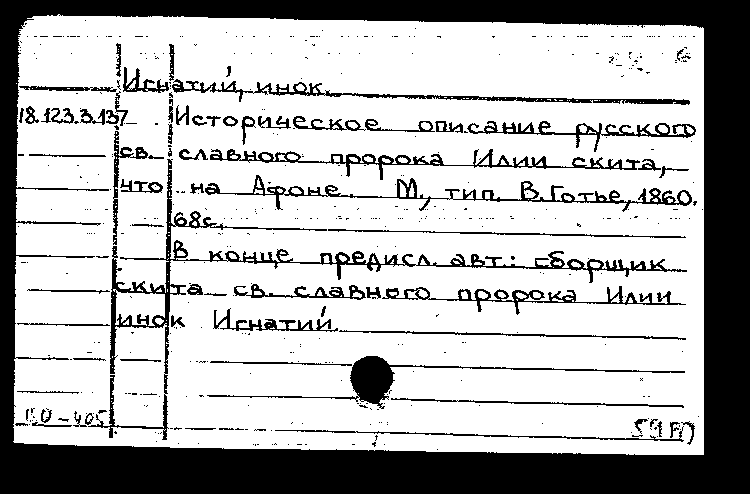 Игнатий, инок.
18.123.3.137 Историческое описание русского
св. славного пророка Илии скита,
что на Афоне. М., тип. В. Готье, 1860.
68с.
В конце предисл. авт.: сборщик
скита св. славного пророка Илии
инок Игнатий.